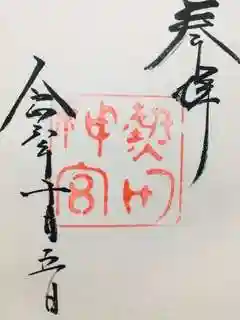 奉拝
熱田
神宮
令和年十月五日